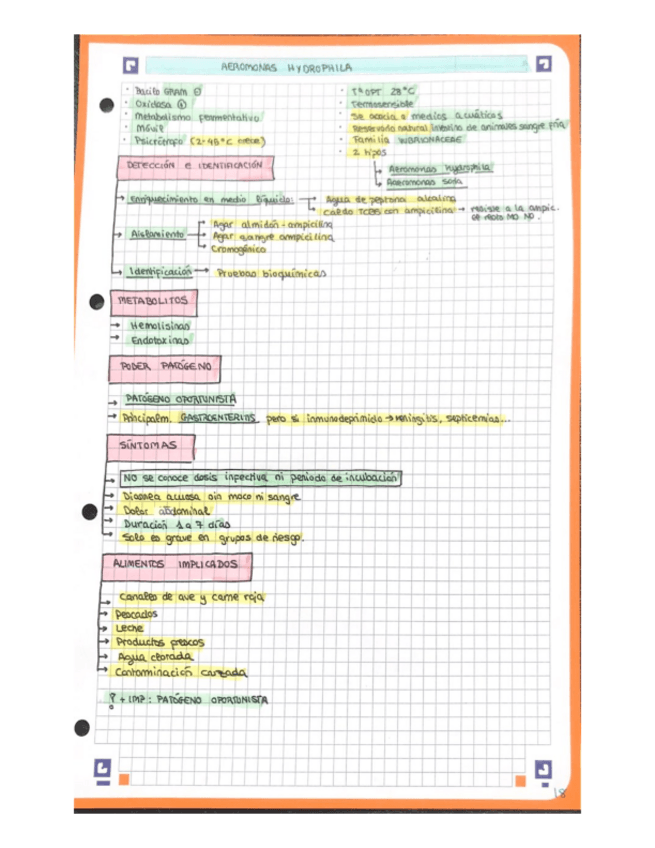 AEROMONAS HYDROPHILA
· Bacilo GRAM ⊖
· Oxidasa ⊕
· Metabolismo fermentativo
· Móvil
· Psicrótrofo (2-45°C crece)
· Tª OPT 28°C
· Termosensible
· Se asocia a medios acuáticos
· Reservorio natural intestino de animales sangre fría
· Familia VIBRIONACEAE
· 2 tipos
→ Aeromonas hydrophila
→ Aeromonas
DETECCIÓN E IDENTIFICACIÓN
→ Enriquecimiento en medio líquido: → Agua de peptona alcalina
→ Caldo TCBS con ampicilina → resiste a la ampic. el resto MO NO.
→ Aislamiento → Agar almidón-ampicilina
→ Agar sangre ampicilina
→ Cromogénico
→ Identificación → Pruebas bioquímicas
METABOLITOS
→ Hemolisinas
→ Endotoxinas
PODER PATÓGENO
→ PATÓGENO OPORTUNISTA
→ Principalm. GASTROENTERITIS pero si inmunodeprimido → meningitis, septicemias...
SÍNTOMAS
→ NO se conoce dosis infectiva ni periodo de incubación
→ Diarrea acuosa sin moco ni sangre
→ Dolor abdominal
→ Duración 1 a 7 días
→ Solo es grave en grupos de riesgo.
ALIMENTOS IMPLICADOS
→ Canales de ave y carne roja
→ Pescados
→ Leche
→ Productos frescos
→ Agua clorada
→ Contaminación cruzada
+ IMP: PATÓGENO OPORTUNISTA
18